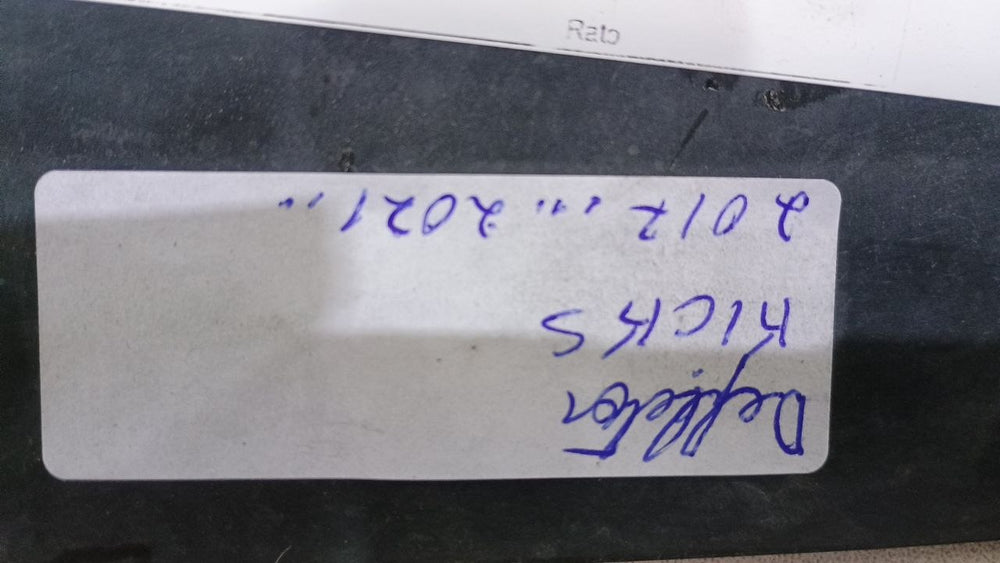 Rato
Deflector
KICKS
2017 ... 2021 ..